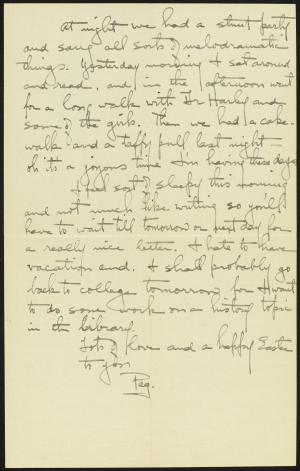 At night we had a stunt party
and sang all sorts of melodramatic
things. Yesterday morning I sat around
and read, and in the afternoon went
for a long walk with Dr Harley and
some of the girls. Then we had a cake-
walk and a taffy pull last night –
oh it's a joyous time I'm having these days.
I feel sort of sleepy this morning
and not much like writing so you'll
have to wait till tomorrow or next day for
a really nice letter. I hate to have
vacation end. I shall probably go
back to college tomorrow for I want
to do some work on a history topic
in the library.
Lots of love and a happy Easter
to you
Peg.